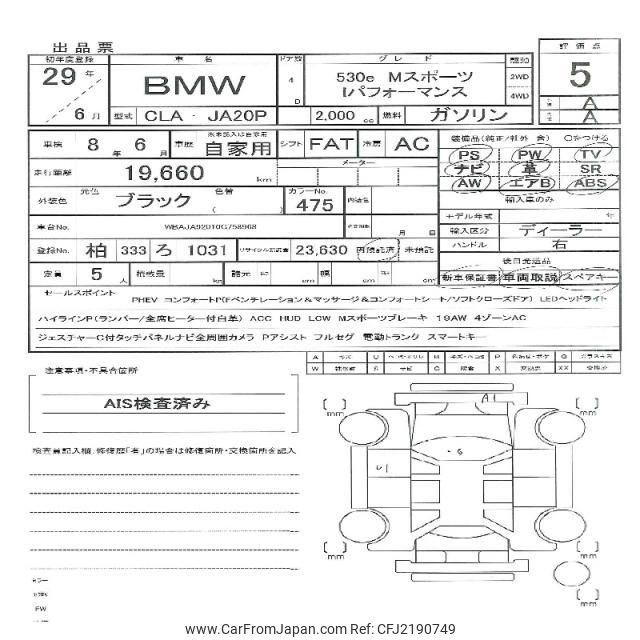 出品票
初年度登録 車名 ドア数 グレード 評価点
29年 BMW 4D 530e Mスポーツ 2WD 5
6月 Iパフォーマンス 4WD A
型式 CLA - JA20P 2,000cc 燃料 ガソリン A
車検 8年 6月 車歴 自家用 シフト FAT 冷房 AC
装備品(純正/社外 含) ○をつける
PS PW TV
走行距離 19,660km メーター
ナビ 革 SR
AW エアB ABS
外装色 元色 ブラック 色替 ( カラーNo. 475
輸入車のみ
モデル年式 年
車台No. WBAJA92010G758968 月 日
輸入区分 ディーラー
登録No. 柏 333 ろ 1031 23,630 円預託済 未預託
ハンドル 右
後日発送品
定員 5人 積載量 kg 諸元 cm 幅 cm cm
新車保証書 車両取説 スペアキー
セールスポイント
PHEV コンフォートP(Fベンチレーション&マッサージ&コンフォートシート/ソフトクローズドア) LEDヘッドライト
ハイラインP(ランバー/全席ヒーター付白革) ACC HUD LCW Mスポーツブレーキ 19AW 4ゾーンAC
ジェスチャーC付タッチパネルナビ全周囲カメラ Pアシスト フルセグ 電動トランク スマートキー
注意事項・不具合箇所
AIS検査済み
検査員記入欄:修復歴「有」の場合は修復箇所・交換箇所を記入
A U B P G
W S C X XX
A1
U1
・G
mm
mm
mm
mm
mm
FW
© CarFromJapan.com Ref: CFJ2190749